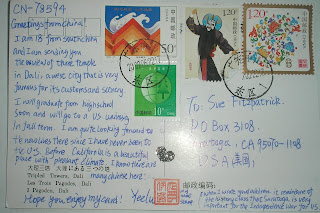 CN-78594
Greetings from China!
I am 18 from south China
and I am sending you
the view of three temple
in Dali, a west city that is very
famous for its custom and scenery.
I will graduate from high school
soon and will go to a US university
in fall term. I am quite looking forward to
the new times there since I have never been to
the U.S. before. California is a beautiful
place with pleasant climate. I know there are
many chinese here!
Hope you enjoy my card!
大理三塔
Tripled Towers, Dali
Les Trois Pagodes, Dali
3 Pagoden, Dali
中国邮政
50分
中国邮政
10分
中国邮政
1.20元
中国邮政
1.20
To: Sue Fitzpatrick
PO Box 3108
Saratoga, CA 95070-1108
USA 美国
邮政编码: